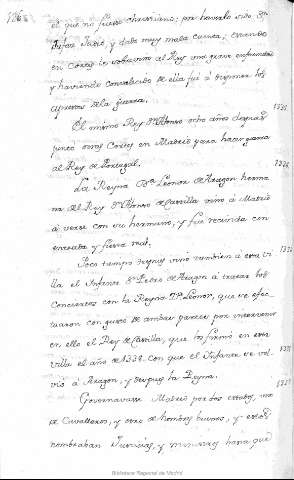 el que no fuese christiano: por haverlo sido Dn.
Jusaf Judio, y dado muy mala cuenta, estando
en Cortes le sobrevino al Rey una grave enfermedad
y haviendo convalecido de ella fué à disponer los
aprestos de la guerra.
1335
El mismo Rey Dn. Alonso ocho años despues
junto otras Cortes en Madrid para hacer guerra
al Rey de Portugal.
La Reyna Dª. Leonor de Aragon herma
na del Rey Dn. Alonso de Castilla vino à Madrid
à verse con su hermano, y fue recivida con
entrada y fiesta real.
Poco tiempo despues vino tambien à esta vi
lla el Infante Dn. Pedro de Aragon à tratar los
Conciertos con la Reyna Dª. Leonor, que se efec
tuaron con gusto de ambas partes por intervenir
en ello el Rey de Castilla, que los firmó en esta
villa el año de 1339. con que el Infante se vol
vió à Aragon, y despues la Reyna.
Governavase Madrid por dos estados, uno
de Cavalleros, y otro de hombres buenos, y estos
nombraban Justicias, y ministros hasta que
Biblioteca Regional de Madrid